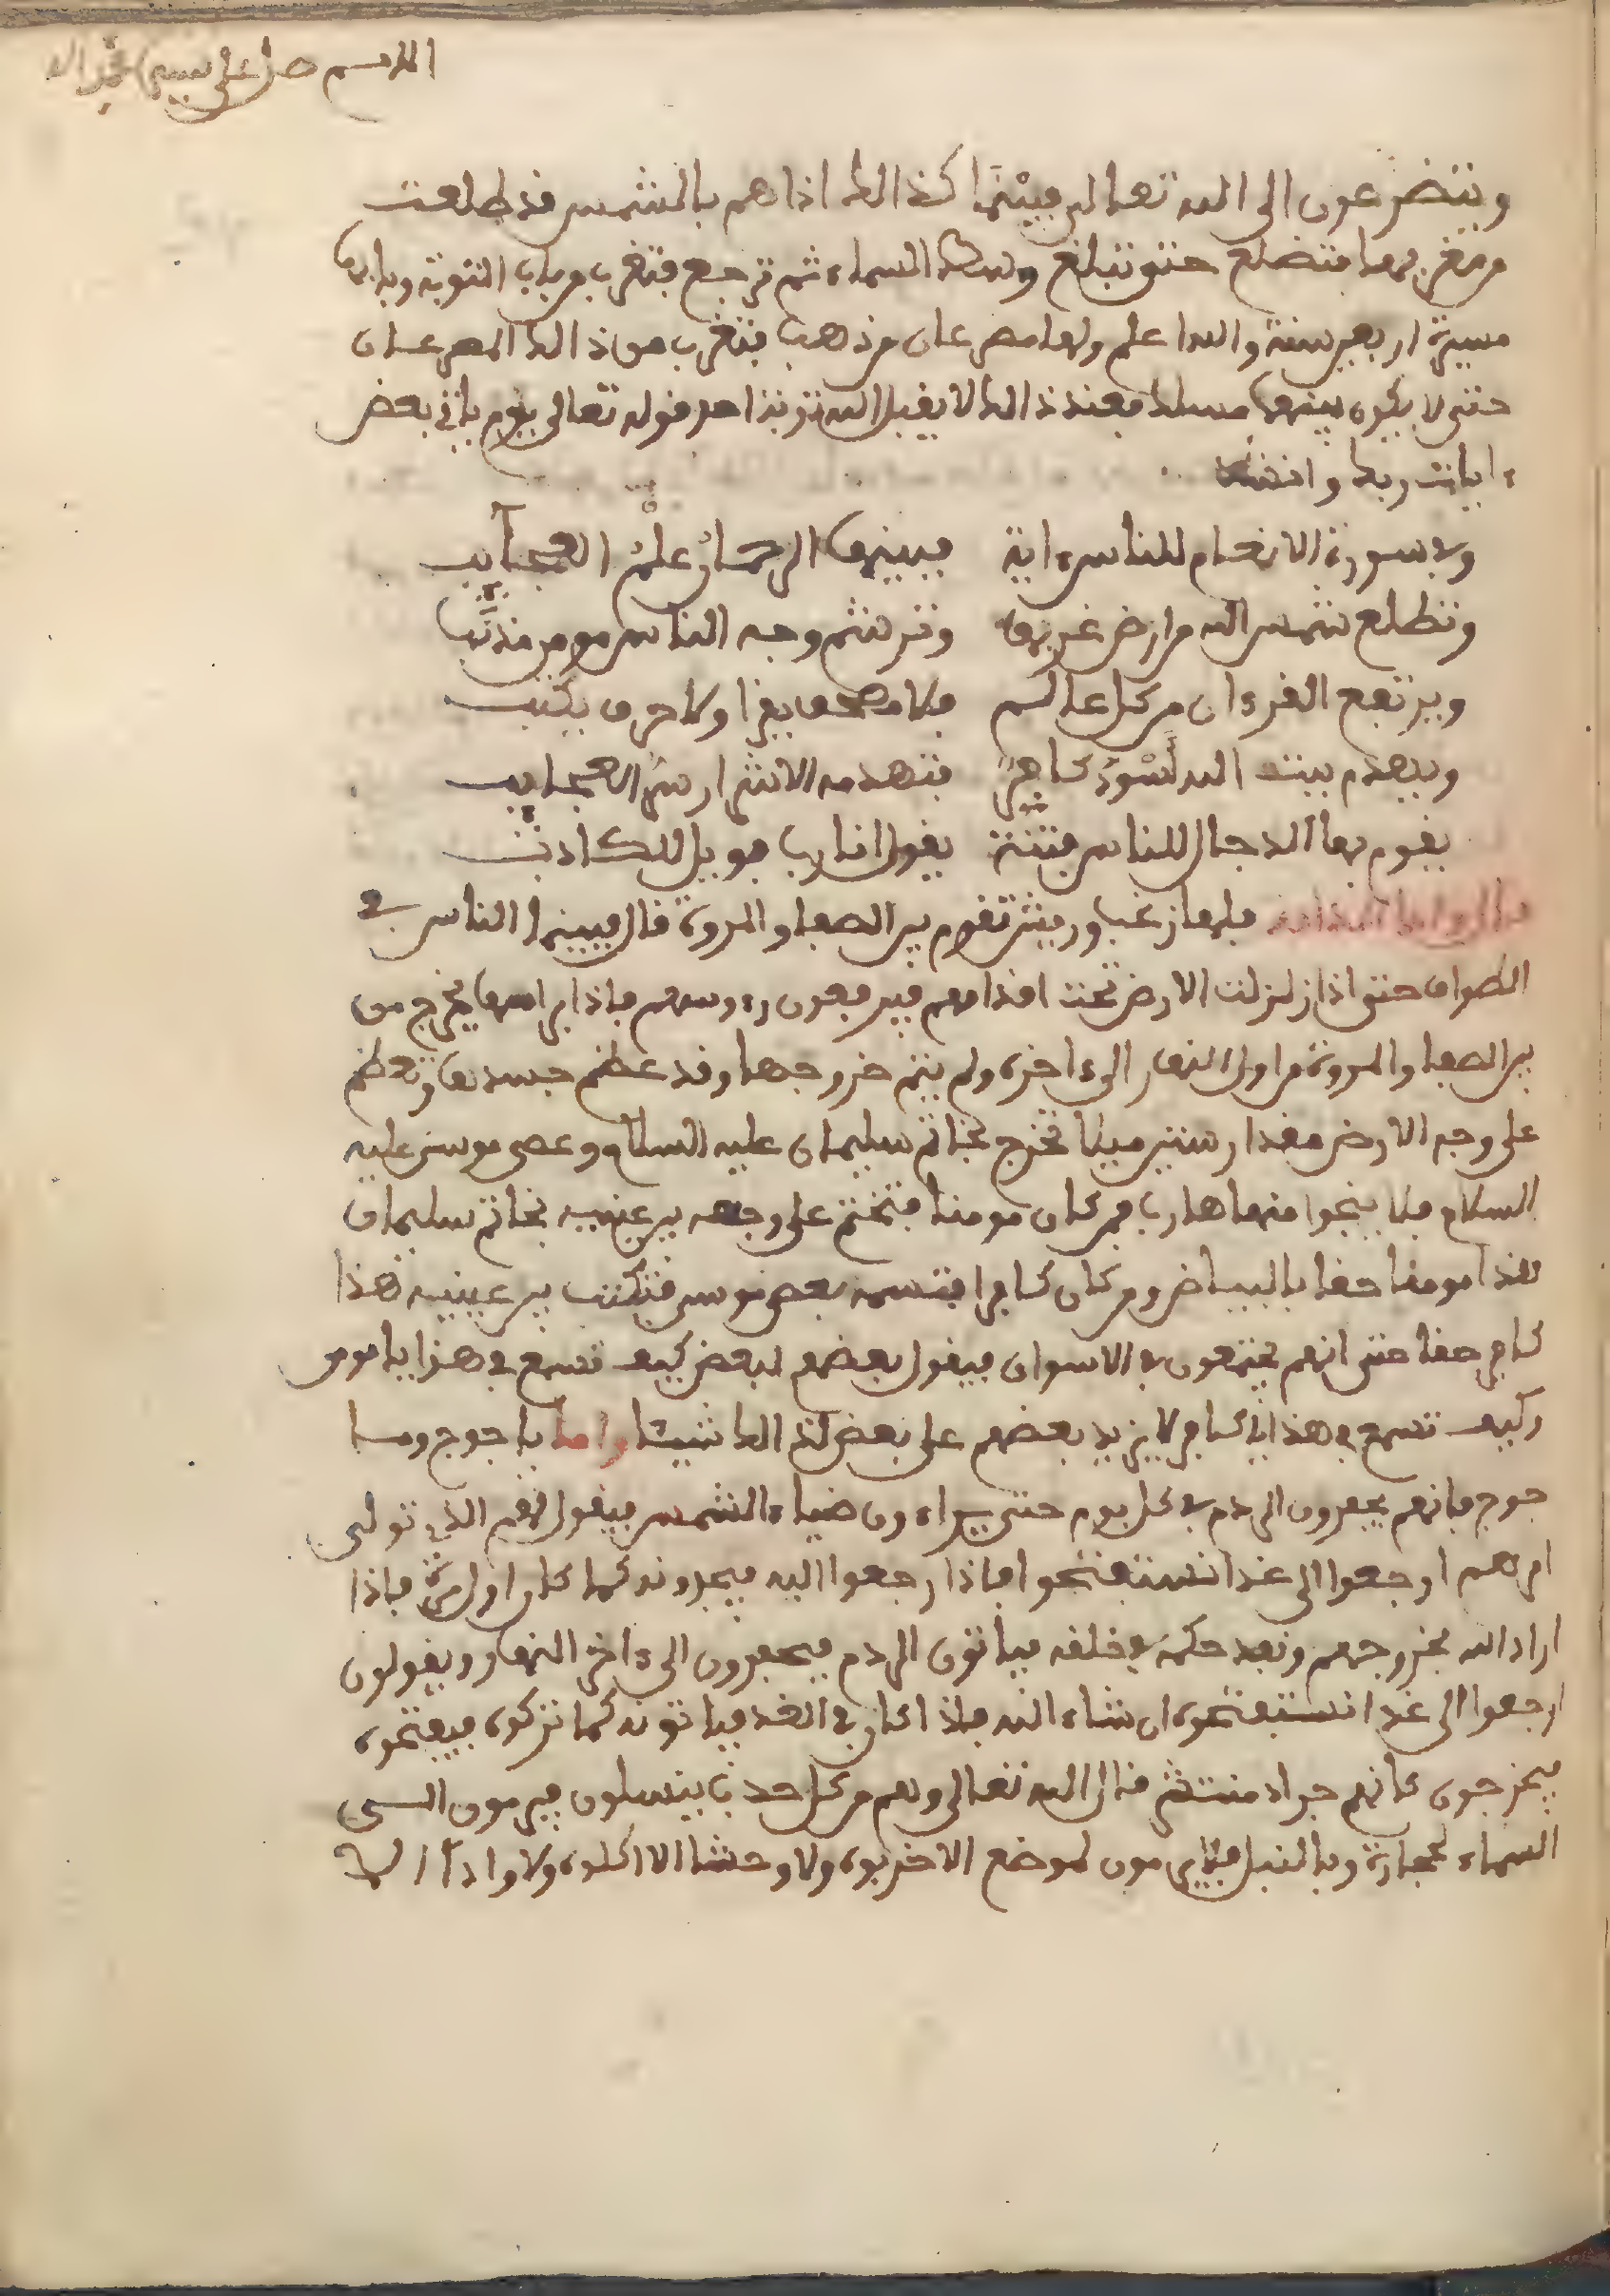 اللهم صل على نبيه محمد
ويتضرعون الى الله تعالى فبينما كذالك اذاهم بالشمس قد طلعت
من مغربها فتضلع حتى تبلغ وسط السماء ثم ترجع فتغرب من باب التوبة وبابها
مسيرة اربعين سنة والله اعلم ولها مصرعان من ذهب فتغرب من ذالك المصرعان
حتى لا يكون بينهما مسلك فعند ذالك لا يقبل الله توبة احد قوله تعالى يوم ياتي بعض
ءايات ربك وانشد
وفي سورة الانعام للناس ءاية فبينها الرحمان علم العجايب
وتطلع شمس الله من ارض غربها وترشم وجه الناس مومن مذنب
ويرتفع القرءان من كل عالم فلا مصحف يقرا ولا حرف يكتب
ويهدم بيت الله اسود كافر فتهدمه الاشرار شر العجايب
يقوم بها الدجال للناس فتنة يقول انا رب فويل للكاذب
واما الدابة فلها زغب وريش تقوم بين الصفا والمروة قال فبينما الناس في
الطواف حتى اذا زلزلت الارض تحت اقدامهم فيرفعون رءوسهم فاذا براسها يخرج من
بين الصفا والمروة من اول النهار الى ءاخره ولم يتم خروجها وقد عظم جسدها وتعظم
على وجه الارض مقدار ستين ميلا تخرج بخاتم سليمان عليه السلام وعصى موسى عليه
السلام فلا ينجوا منها هارب فمن كان مومنا فتختم على وجهه بين عينيه بخاتم سليمان
هذا مومنا حقا بالبياض ومن كان كافرا فتسمه بعصى موسى فتكتب بين عينيه هذا
كافر حقا حتى انهم يجتمعون في الاسواق فيقول بعضهم لبعض كيف تسمع في هذا يا مومن
وكيف تسمع في هذا يا كافر لا يزيد بعضهم على بعض لذالك شيئا واما ياجوج وما
جوج فانهم يحفرون الردم في كل يوم حتى يراءون ضياء الشمس فيقول لهم الذي تولى
امرهم ارجعوا الى غدا نستفتحوا فاذا رجعوا اليه فيجدونه كما كان اول مرة فاذا
اراد الله بخروجهم ونفد حكمه في خلقه فياتون الردم فيحفرون الى ءاخر النهار ويقولون
ارجعوا الى غدا نستفتحوه ان شاء الله فاذا كان في الغد فياتونه كما تركوه فيفتحوه
فيخرجون كانهم جراد منتشر قال الله تعالى وهم من كل حدب ينسلون فيرمون السى
السماء بحجارة وبالنبل فلا يمرون لموضع الا خربوه ولا وحشا الا اكلوه ولا واد الا